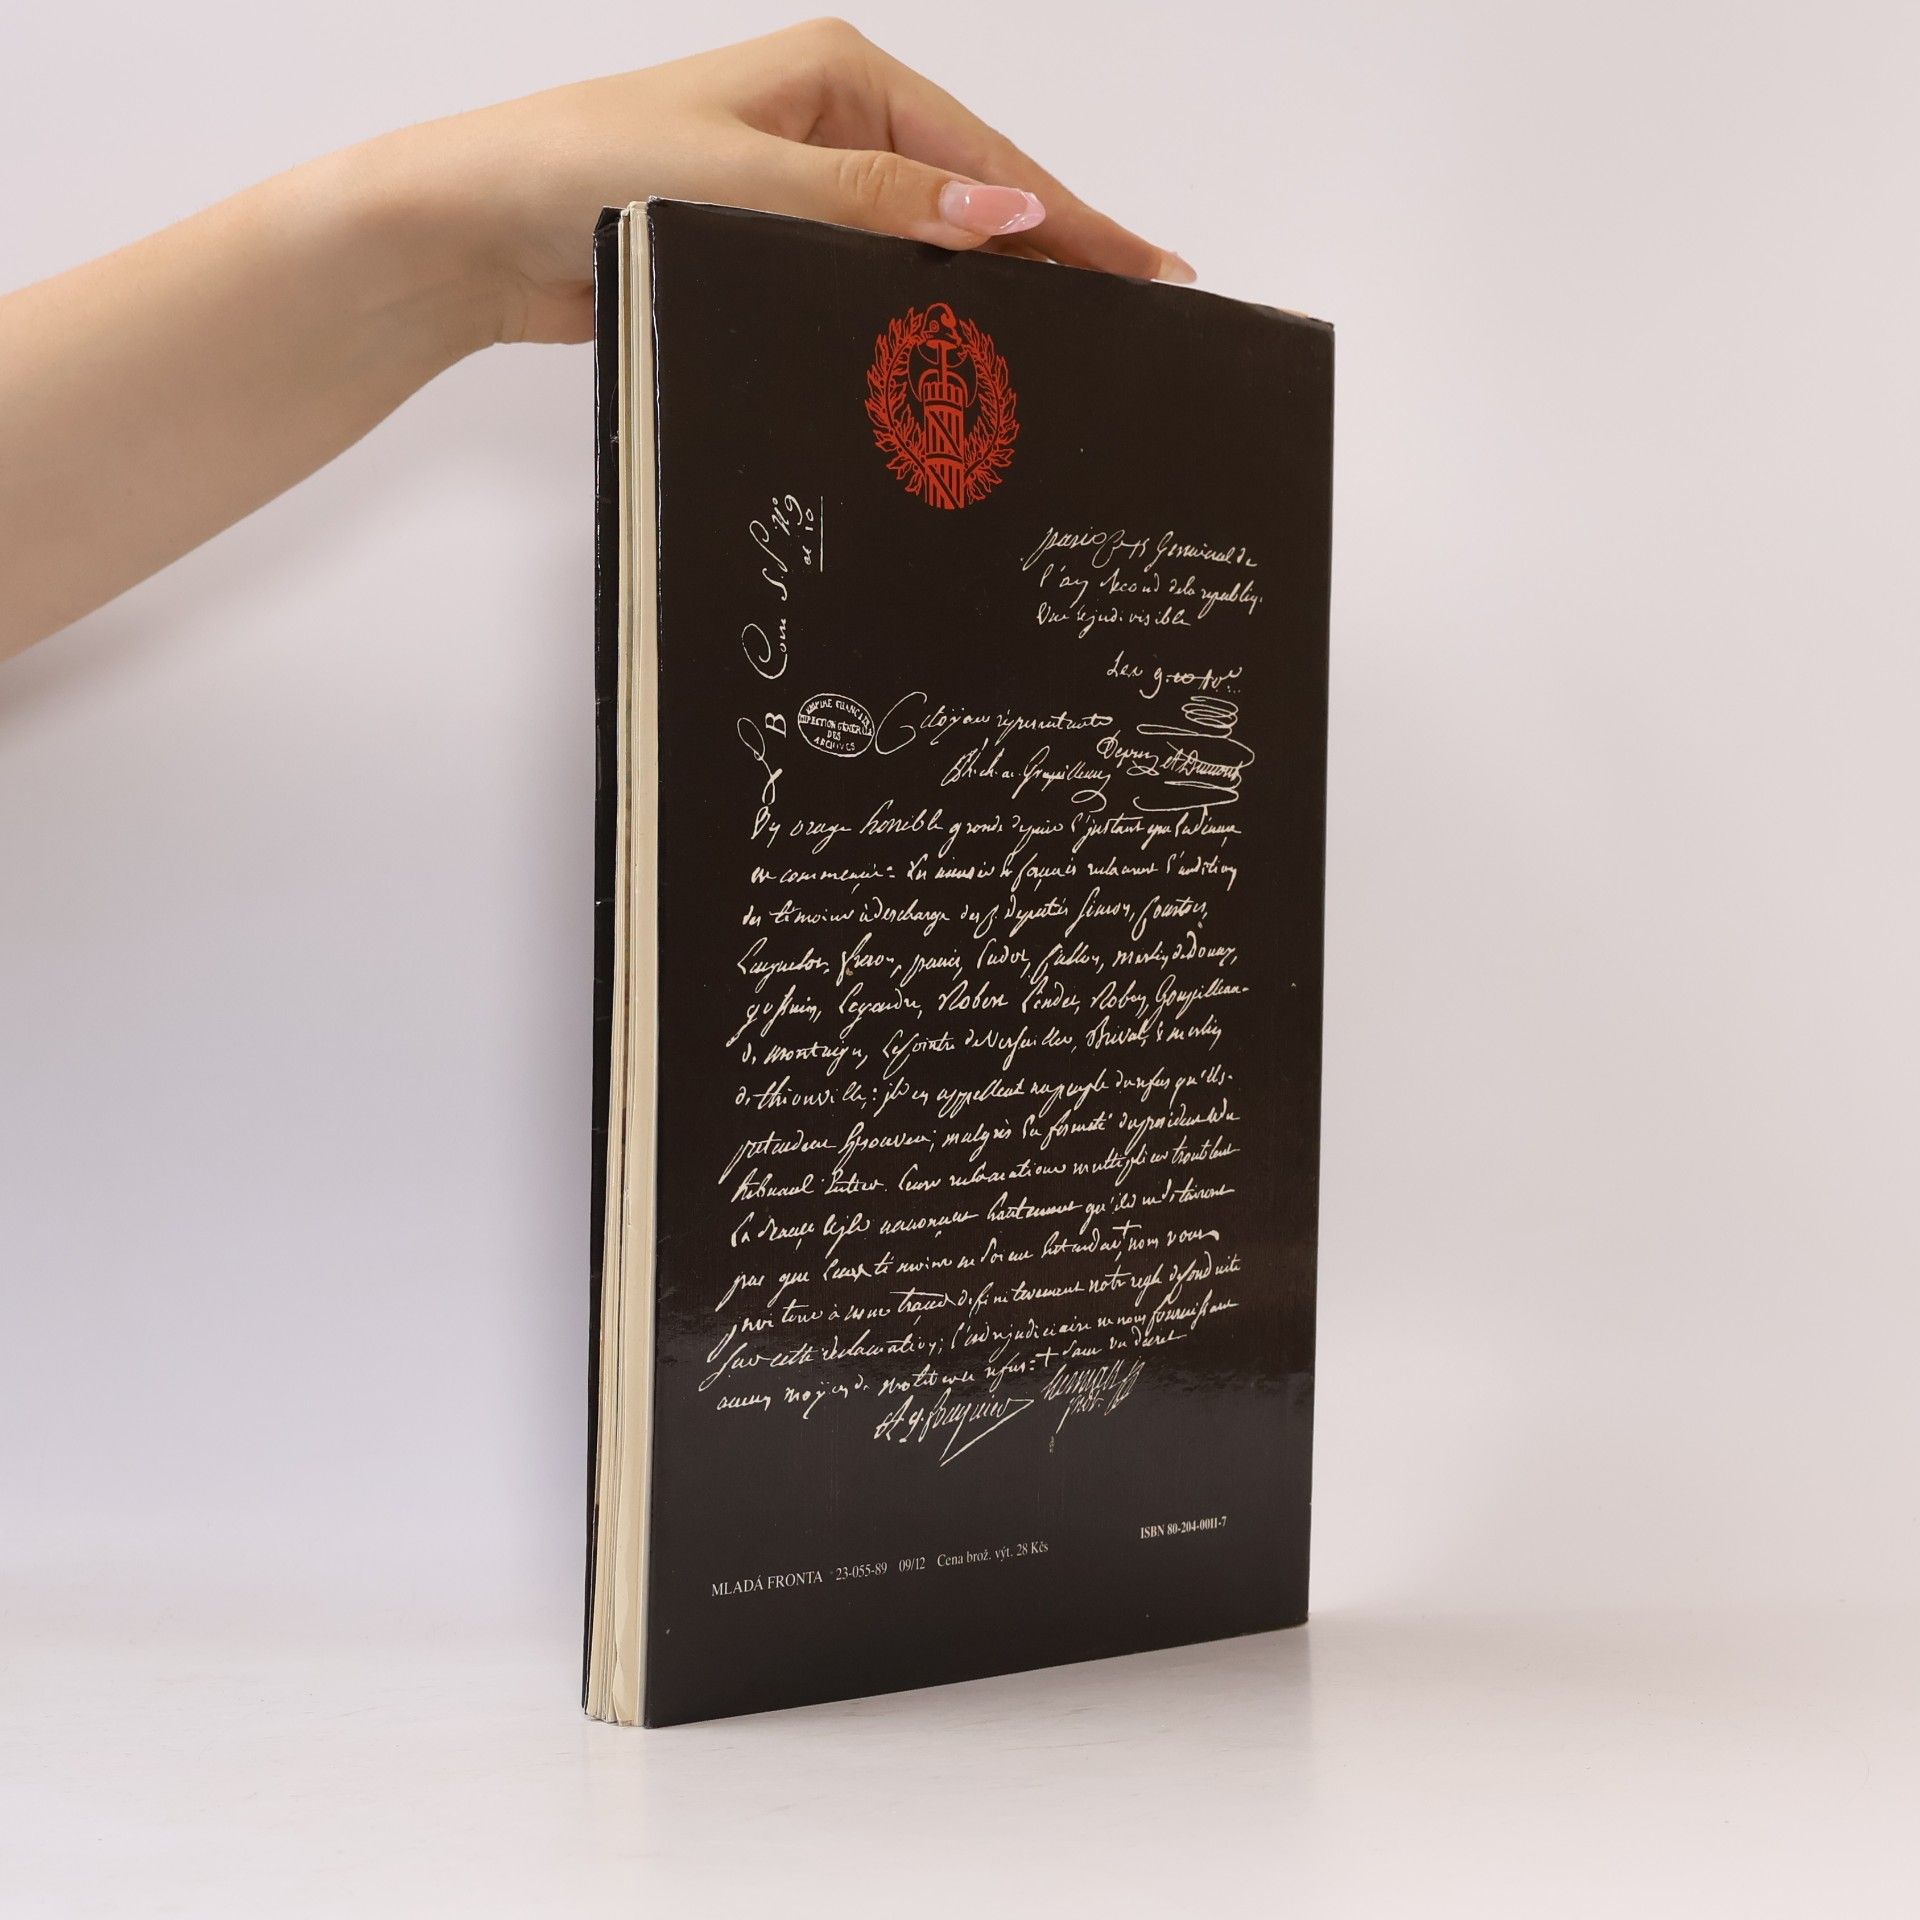 Com S. P. Nº 9
et 10
B
paris ce 15 Germinal de
l'an second de la republiq.
Une & indivisible
EMPIRE FRANÇAIS
DIRECTION GÉNÉRALE
DES
ARCHIVES
Citoyens représentants
Un orage horrible gronde depuis l'instant que la séance
est commencée: Les accusés en forcenés reclament l'audition
des témoins à decharge des c. Deputés Simon, Courtois,
Laignelot, freron, panis, Ludot, Callon, merlin de Douay,
gossuin, Legendre, Robert Lindet, Robin, Goupilleau
de montaigu, Lecointre de Versailles, Brival, & merlin
de thionville; ils en appellent au peuple du refus qu'ils
pretendent éprouver; malgrès la fermeté du president et du
tribunal Entier. leurs reclamations multipliées troublent
la séance & ils annoncent hautement qu'ils ne se tairont
pas que leurs témoins ne soient Entendus, nous vous
invitons à nous tracer definitivement notre regle de conduite
sur cette reclamation; l'ordre judiciaire ne nous fournissant
aucun moyen de motiver ce refus: + sans un décret
A. Q. Fouquier
herman
prés.
ISBN 80-204-0011-7
MLADÁ FRONTA 23-055-89 09/12 Cena brož. výt. 28 Kčs